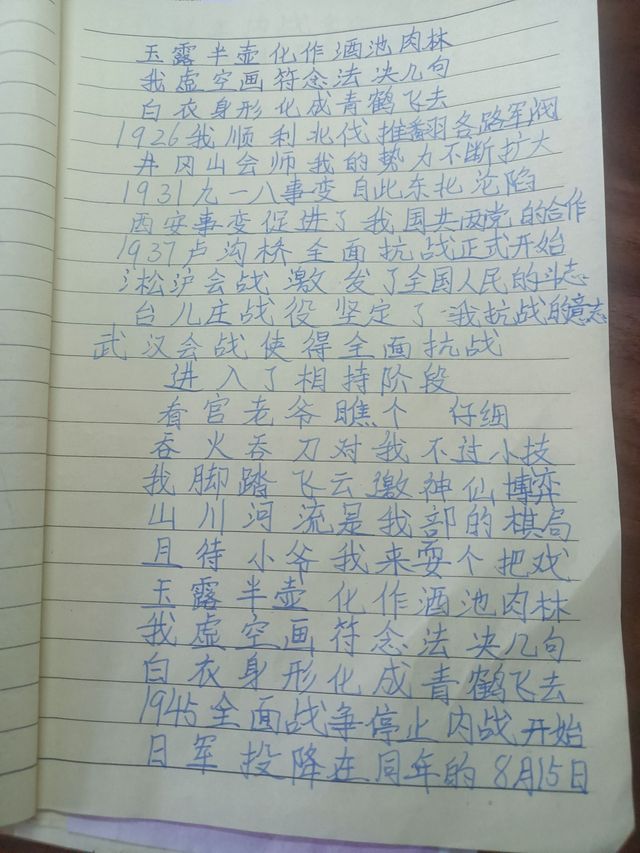 玉露半壶化作酒池肉林
我虚空画符念法决几句
白衣身形化成青鹤飞去
1926我顺利北伐推翻各路军阀
井冈山会师我的势力不断扩大
1931九一八事变自此东北沦陷
西安事变促进了我国共两党的合作
1937卢沟桥全面抗战正式开始
淞沪会战激发了全国人民的斗志
台儿庄战役坚定了我抗战的意志
武汉会战使得全面抗战
进入了相持阶段
看官老爷瞧个 仔细
吞火吞刀对我不过小技
我脚踏飞云邀神仙博弈
山川河流是我部的棋局
且待小爷我来耍个把戏
玉露半壶化作酒池肉林
我虚空画符念法决几句
白衣身形化成青鹤飞去
1945全面战争停止内战开始
日军投降在同年的8月15日